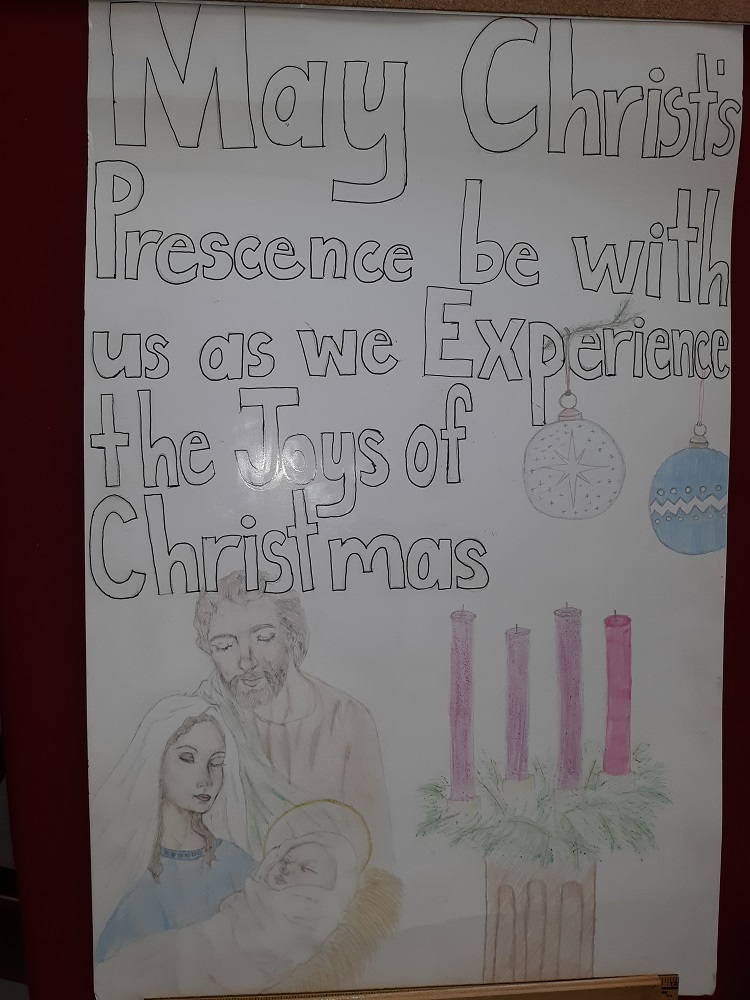 May Christ's
Prescence be with
us as we Experience
the Joys of
Christmas